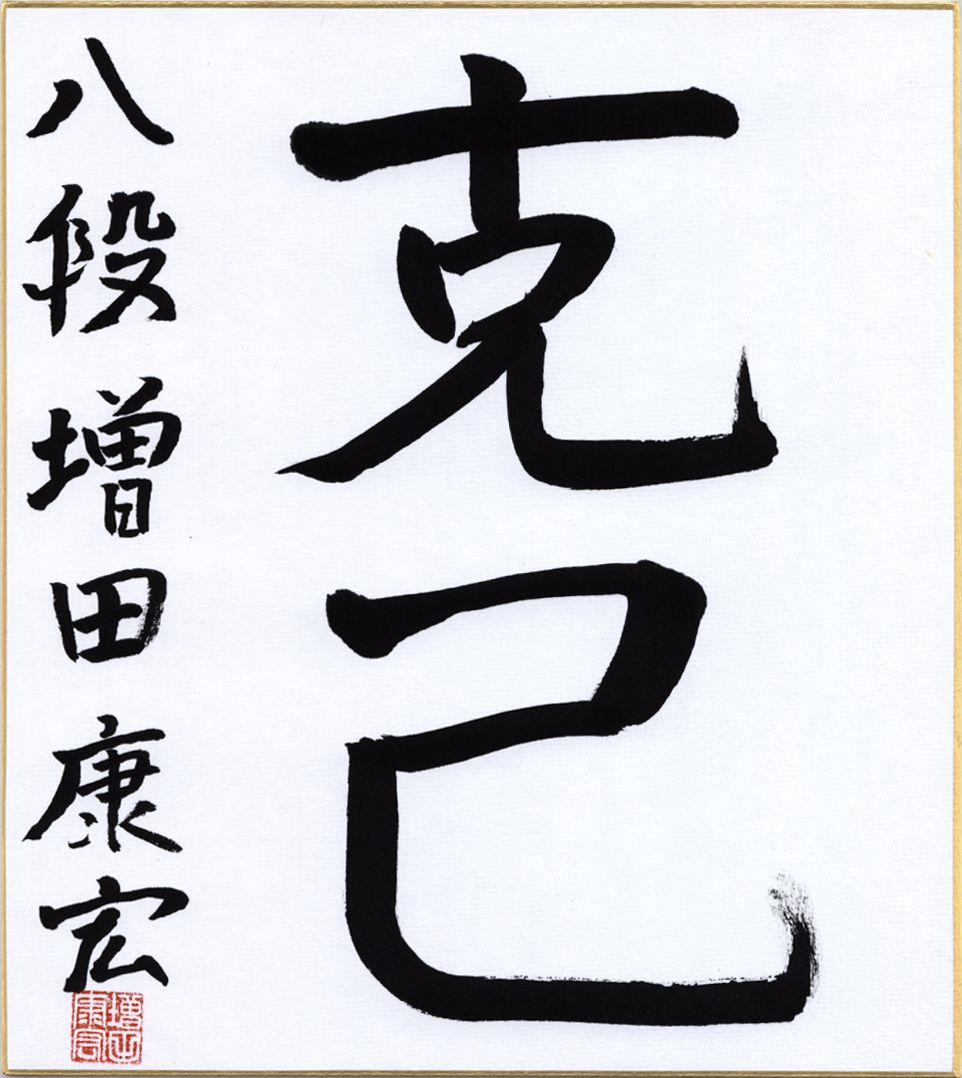 克己
八段 増田康宏
増田康宏